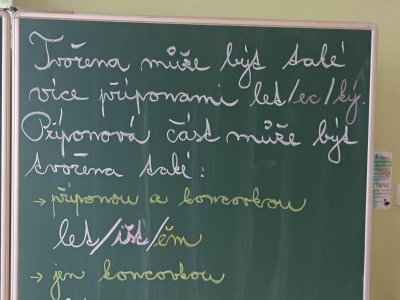 Tvořena může být také
více příponami let/ec/ký.
Příponová část může být
tvořena také:
→ příponou a koncovkou
let/išt/ěm
→ jen koncovkou